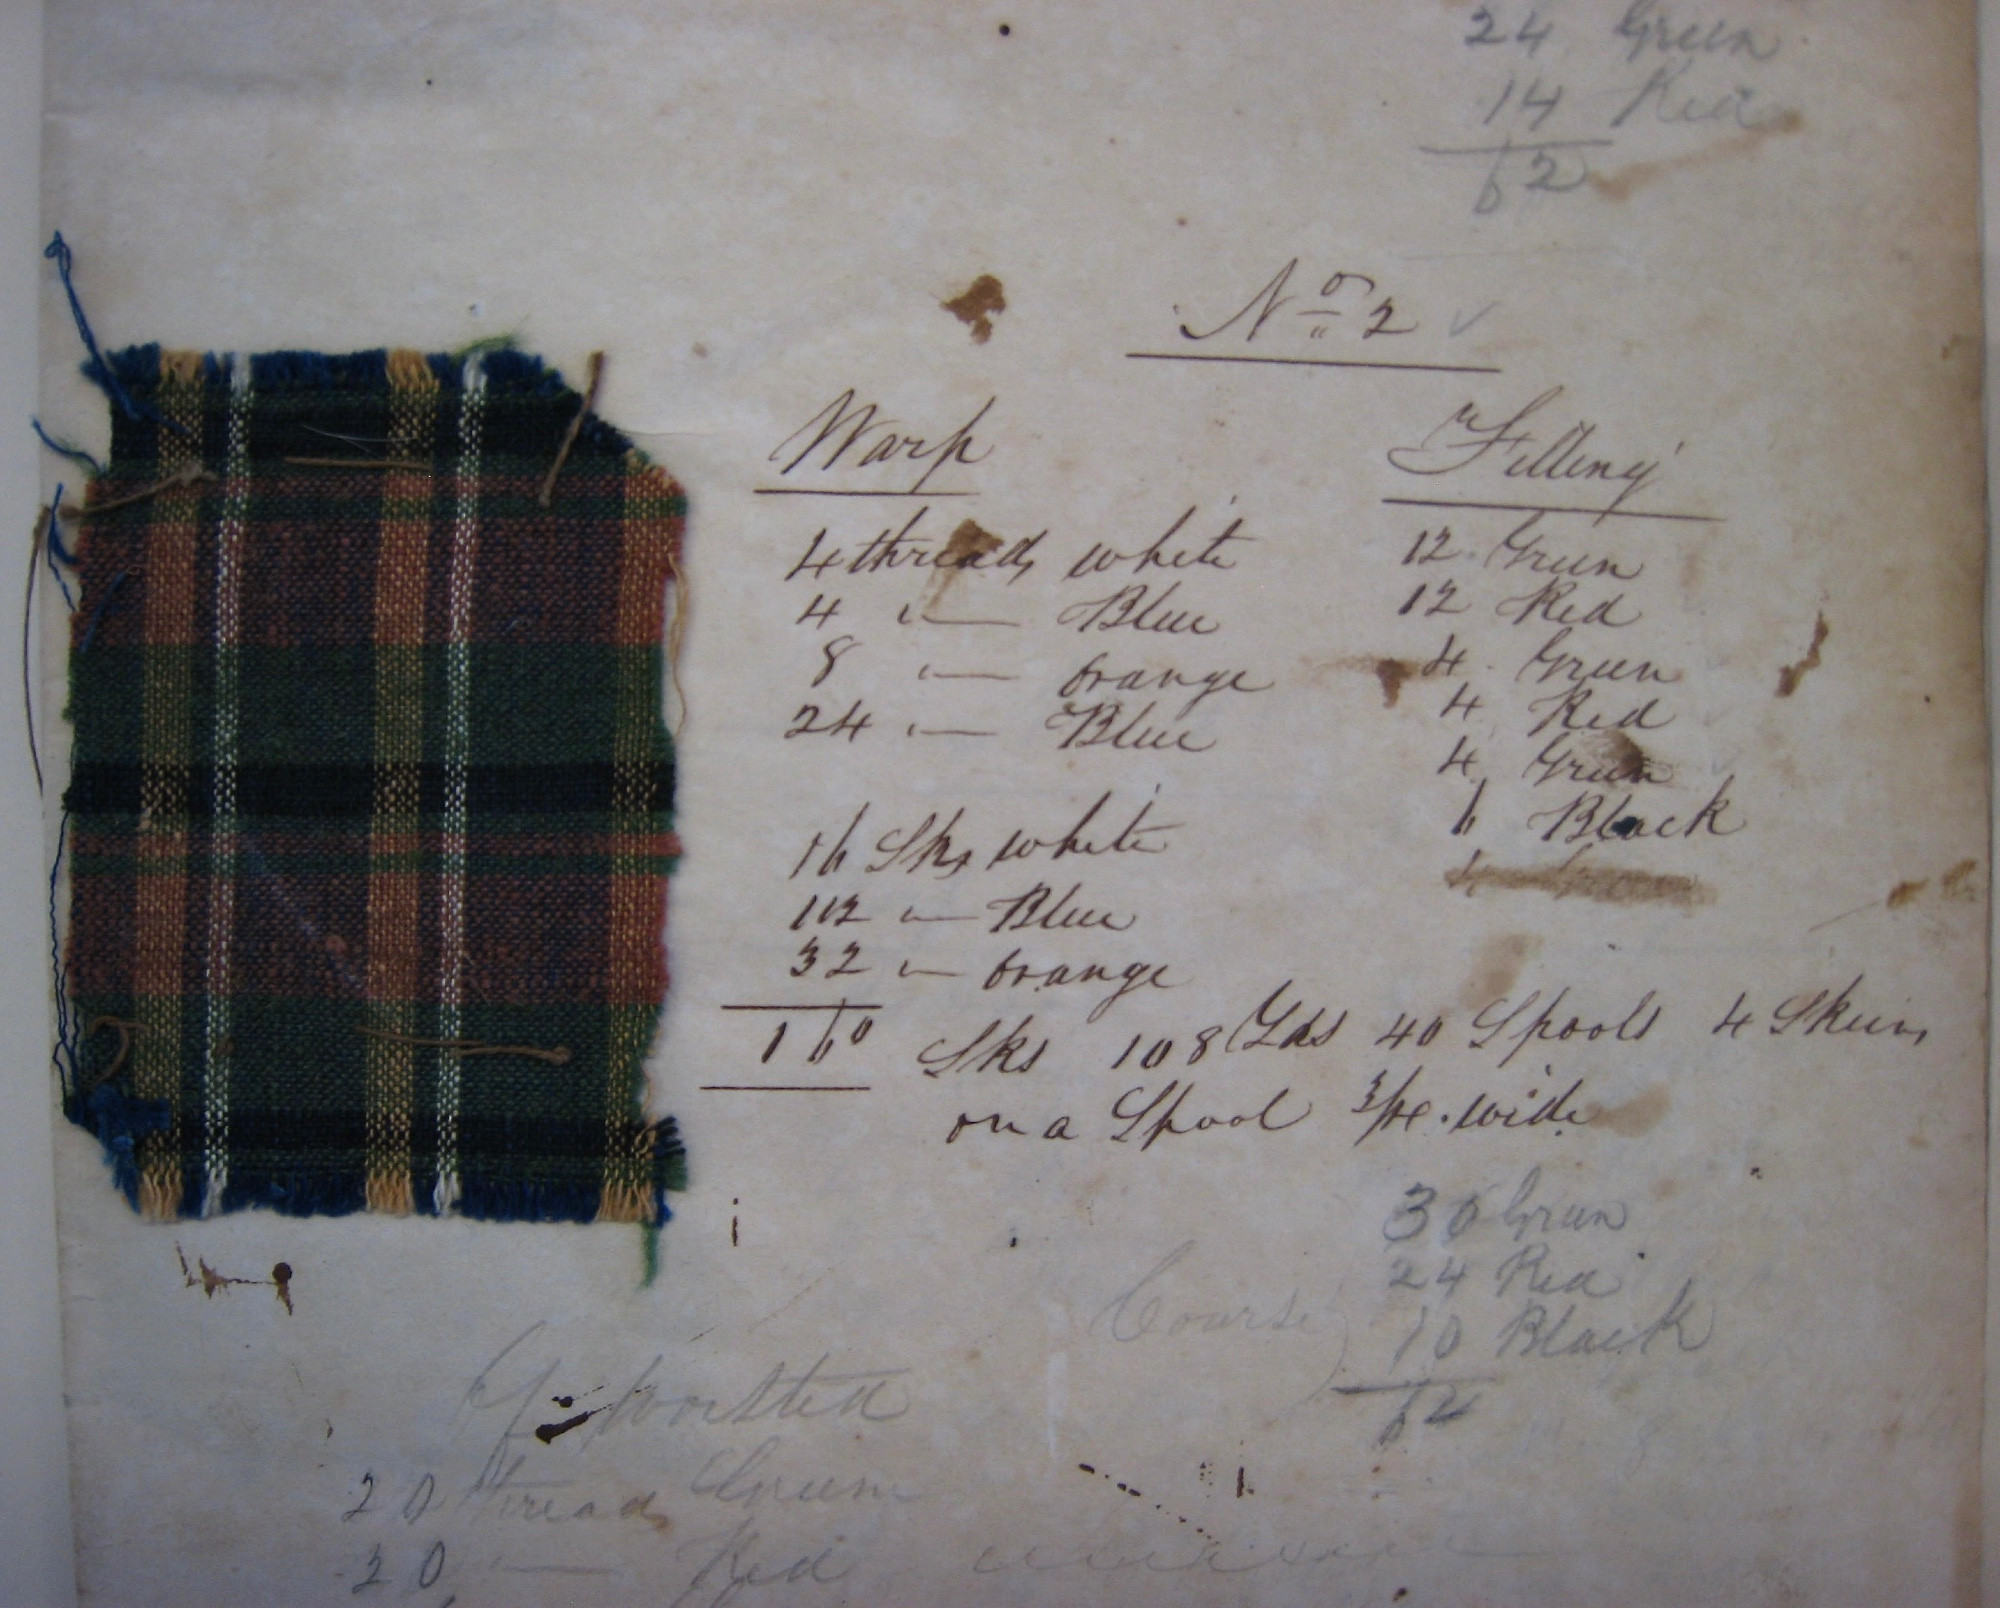 24 Green
14 Red
62
No 2
Warp
4 threads white
4 " — Blue
8 " — orange
24 " — Blue
16 Sks white
112 " — Blue
32 " — orange
160 Sks 108 Yds 40 Spools 4 Skeins
on a Spool 3/4 wide
Filling
12 Green
12 Red
4 Green
4 Red
4 Green
6 Black
4
Course
30 Green
24 Red
10 Black
64
worsted
20 threads Green
20 — Red